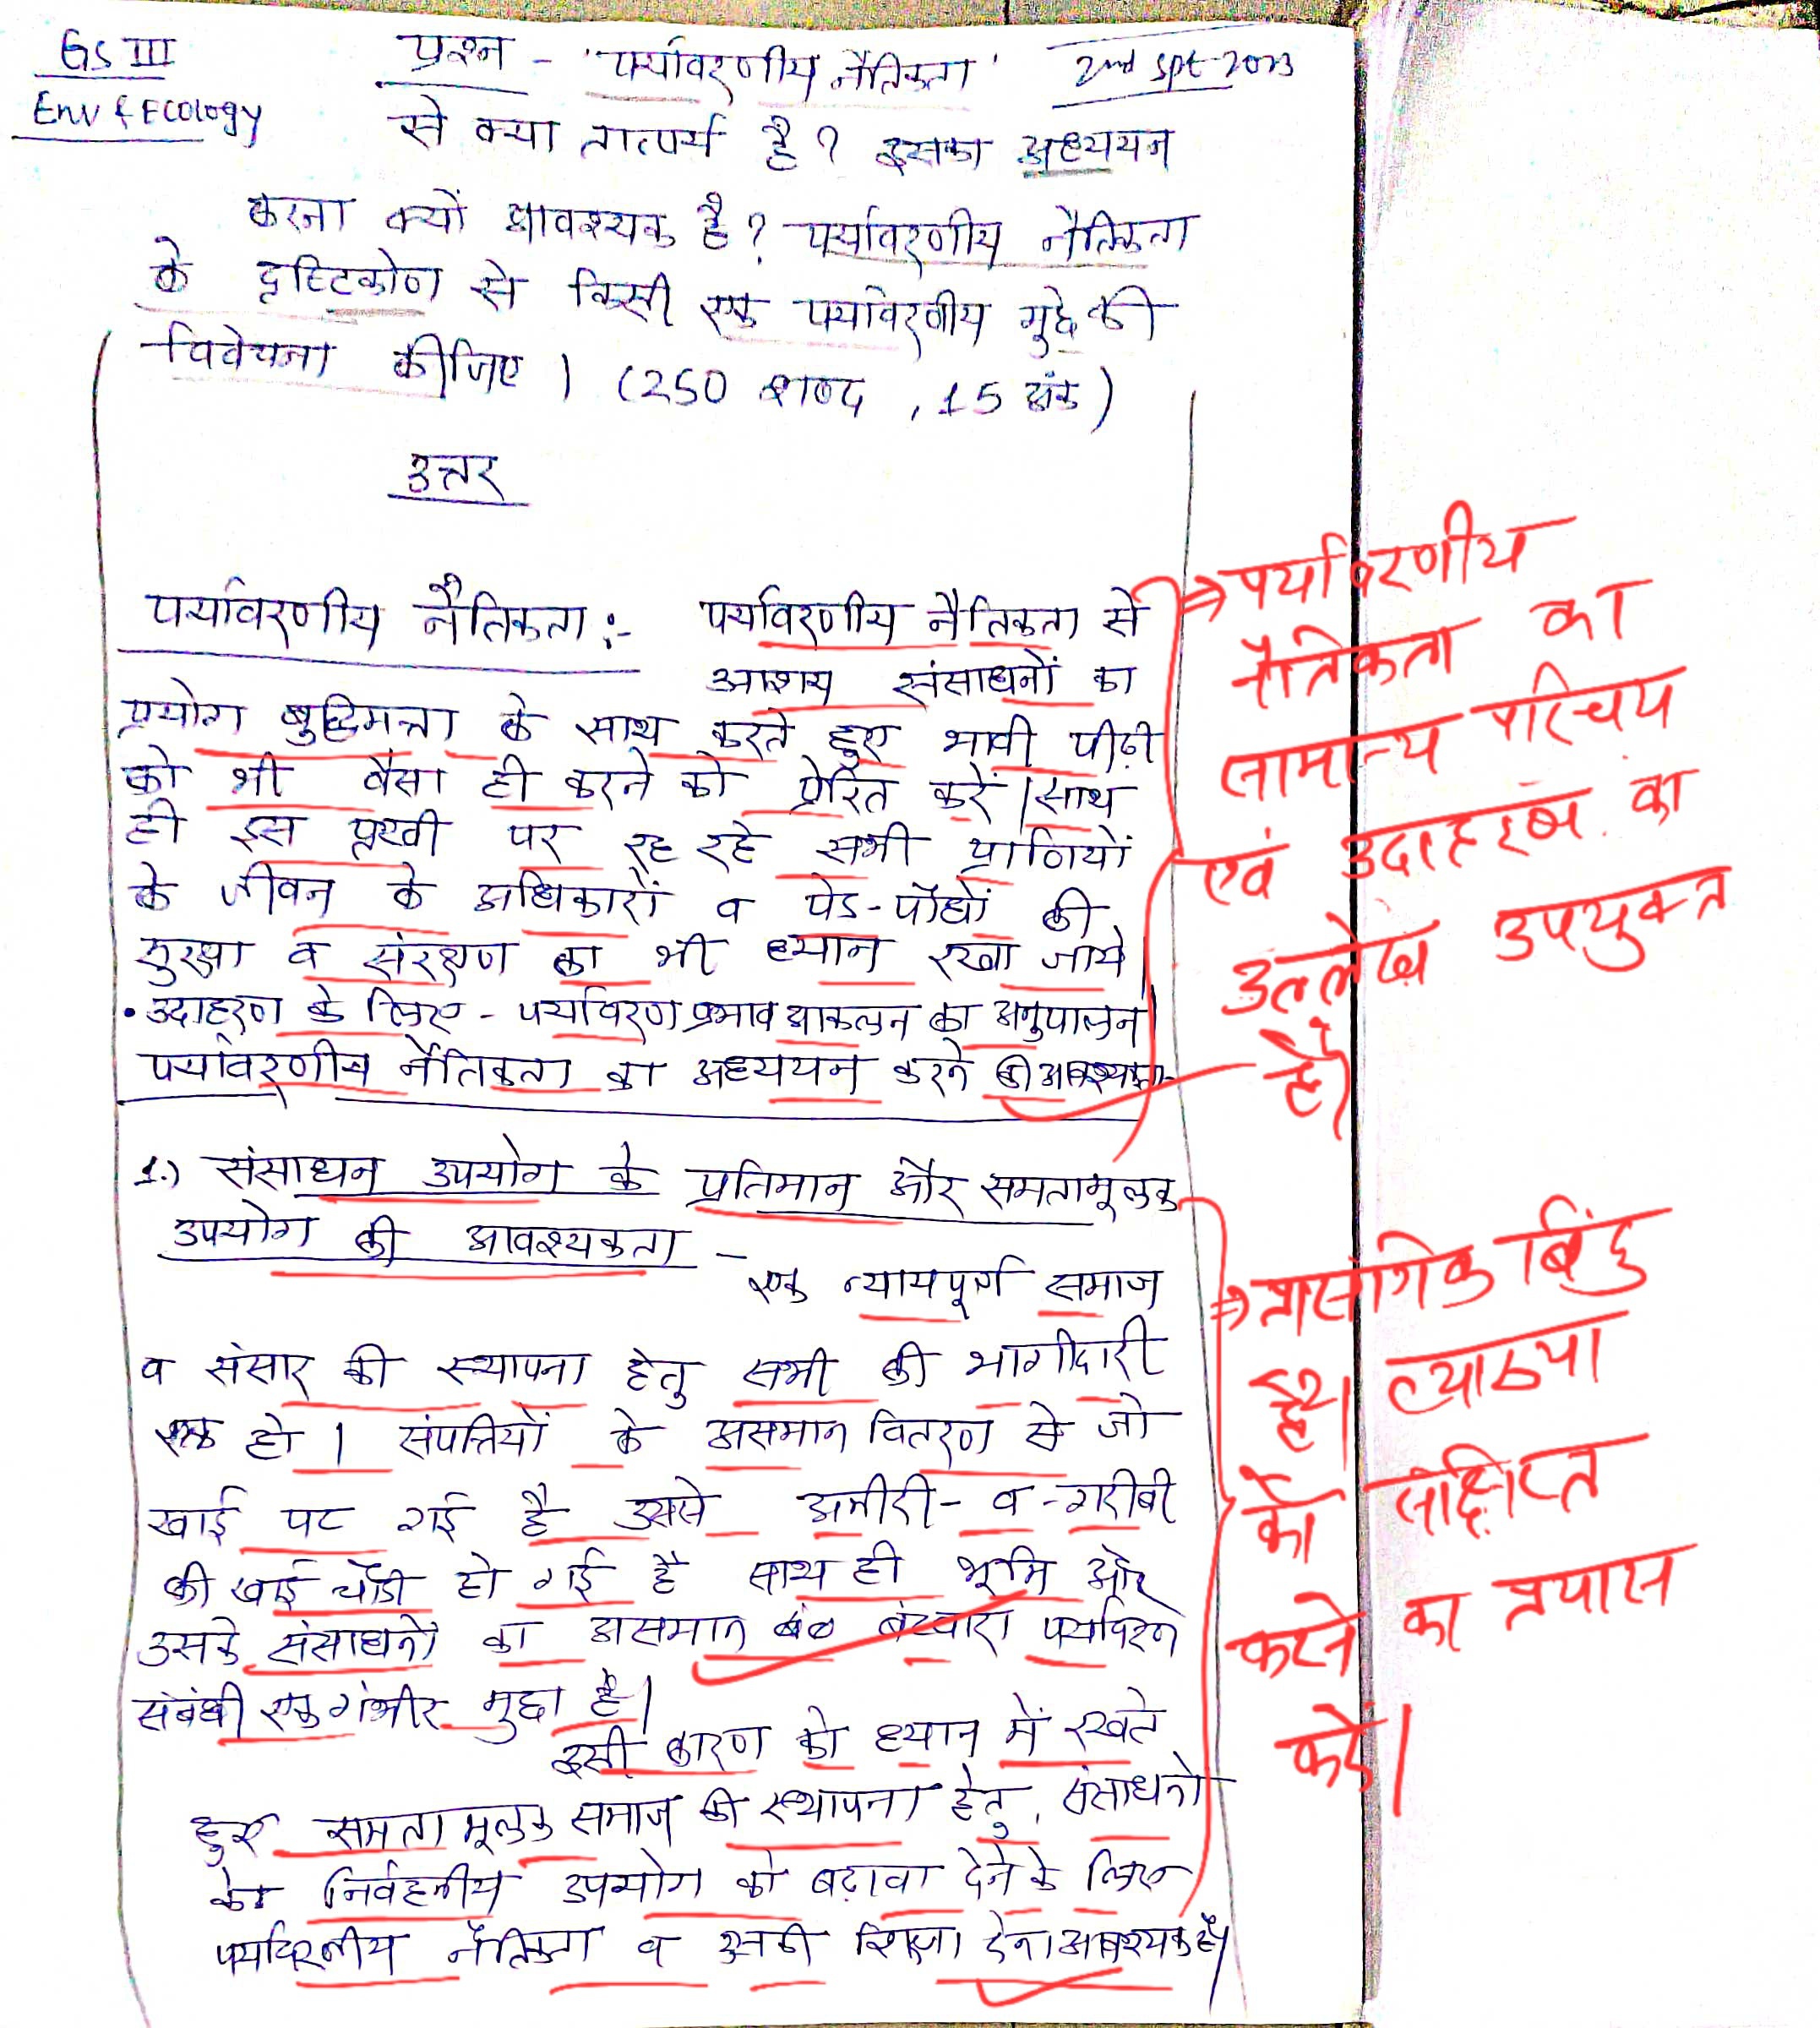 GS III
Env & Ecology
प्रश्न - 'पर्यावरणीय नैतिकता' 2nd Spt-2023
से क्या तात्पर्य है? इसका अध्ययन
करना क्यों आवश्यक है? पर्यावरणीय नैतिकता
के दृष्टिकोण से किसी एक पर्यावरणीय मुद्दे की
विवेचना कीजिए। (250 शब्द, 15 अंक)
उत्तर
पर्यावरणीय नैतिकता :- पर्यावरणीय नैतिकता से
आशय संसाधनों का
प्रयोग बुद्धिमत्ता के साथ करते हुए भावी पीढ़ी
को भी वैसा ही करने को प्रेरित करें। साथ
ही इस पृथ्वी पर रह रहे सभी प्राणियों
के जीवन के अधिकारों व पेड-पौधों की
सुरक्षा व संरक्षण का भी ध्यान रखा जाये
• उदाहरण के लिए - पर्यावरण प्रभाव आकलन का अनुपालन
पर्यावरणीय नैतिकता का अध्ययन करने की आवश्यकता-
1.) संसाधन उपयोग के प्रतिमान और समतामूलक
उपयोग की आवश्यकता -
एक न्यायपूर्ण समाज
व संसार की स्थापना हेतु सभी की भागीदारी
एक हो। संपत्तियों के असमान वितरण से जो
खाई पट गई है उससे अमीरी-व-गरीबी
की खाई चौडी हो गई है साथ ही भूमि और
उसके संसाधनों का असमान बंटवारा पर्यावरण
संबंधी एक गंभीर मुद्दा है।
इसी कारण को ध्यान में रखते
हुए समतामूलक समाज की स्थापना हेतु, संसाधनो
का निर्वहनीय उपयोग को बढ़ावा देने के लिए
पर्यावरणीय नैतिकता व उसकी शिक्षा देना आवश्यक है।
⇒ पर्यावरणीय
नैतिकता का
सामान्य परिचय
एवं उदाहरण का
उल्लेख उपयुक्त
है।
⇒ प्रासंगिक बिंदु
है। व्याख्या
को संक्षिप्त
करने का प्रयास
करें।